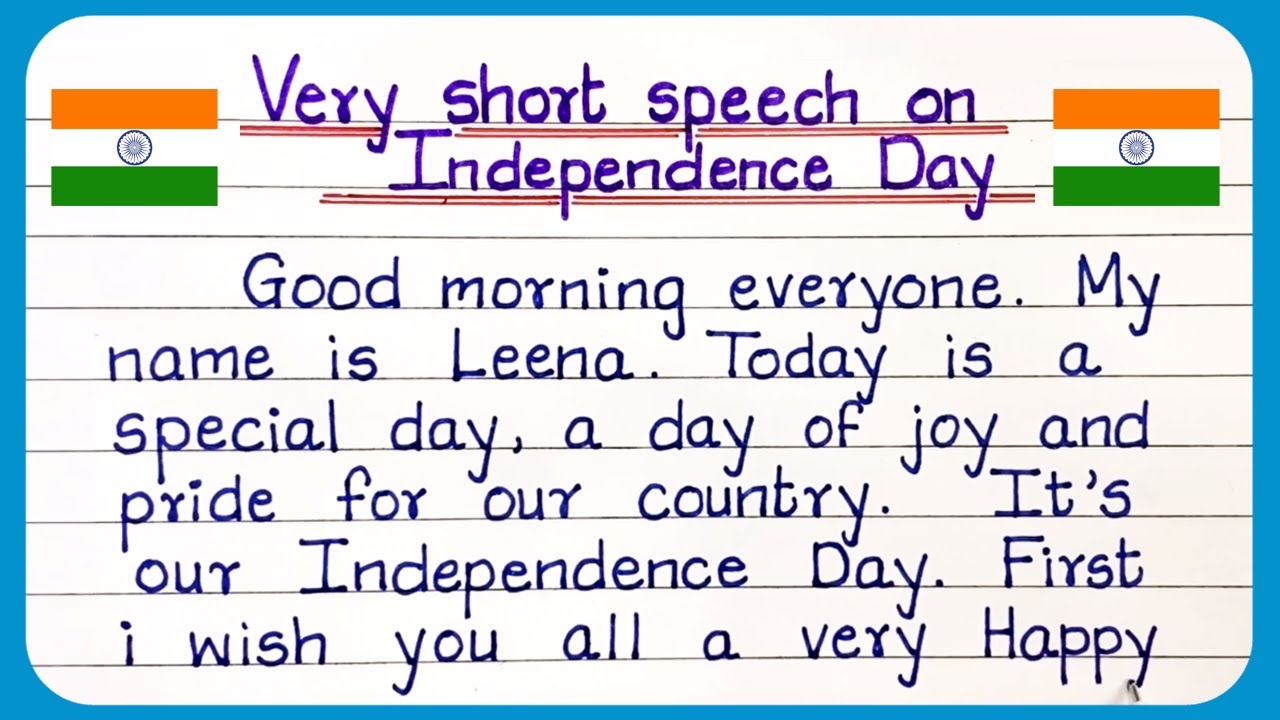 Very short speech on
Independence Day
Good morning everyone. My
name is Leena. Today is a
special day, a day of joy and
pride for our country. It's
our Independence Day. First
i wish you all a very Happy